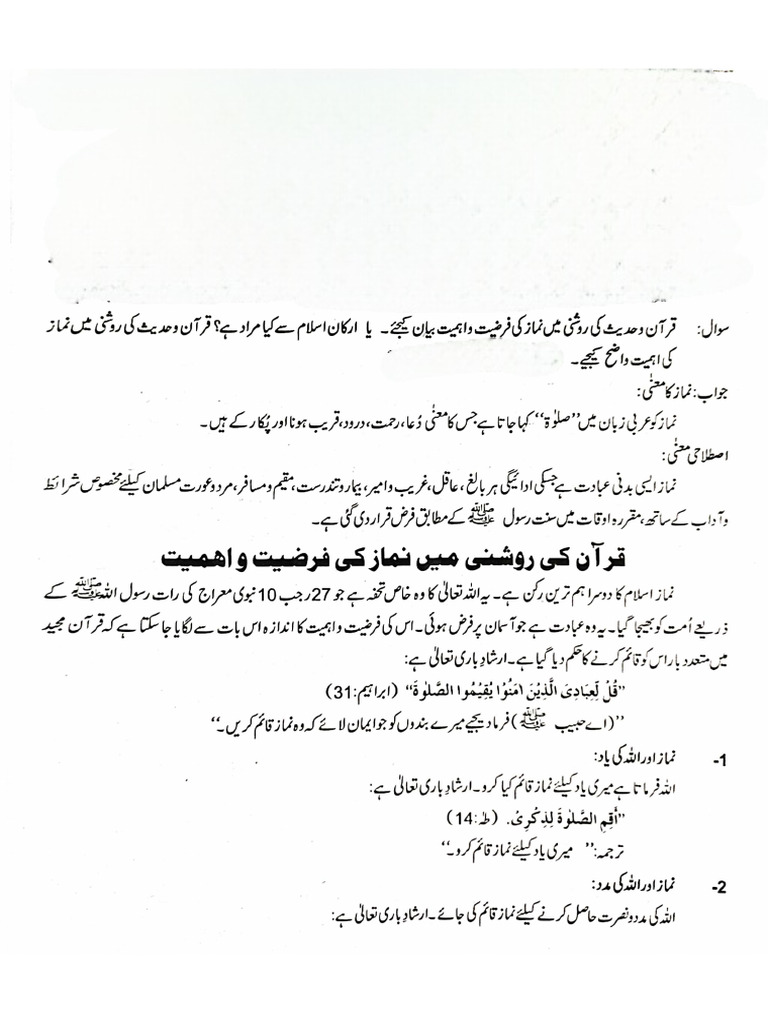 سوال: قرآن و حدیث کی روشنی میں نماز کی فرضیت و اہمیت بیان کیجئے۔ یا ارکان اسلام سے کیا مراد ہے؟ قرآن و حدیث کی روشنی میں نماز
کی اہمیت واضح کیجیے۔
جواب: نماز کا معنٰی:
نماز کو عربی زبان میں ”صلوٰۃ“ کہا جاتا ہے جس کا معنٰی دُعا، رحمت، درود، قریب ہونا اور پُکار کے ہیں۔
اصطلاحی معنٰی:
نماز ایسی بدنی عبادت ہے جسکی ادائیگی ہر بالغ، عاقل، غریب و امیر، بیمار و تندرست، مقیم و مسافر، مرد و عورت مسلمان کیلئے مخصوص شرائط
و آداب کے ساتھ، مقررہ اوقات میں سنت رسول ﷺ کے مطابق فرض قرار دی گئی ہے۔
قرآن کی روشنی میں نماز کی فرضیت و اھمیت
نماز اسلام کا دوسرا ہم ترین رکن ہے۔ یہ اللہ تعالیٰ کا وہ خاص تحفہ ہے جو 27 رجب 10 نبوی معراج کی رات رسول اللہ ﷺ کے
ذریعے اُمت کو بھیجا گیا۔ یہ وہ عبادت ہے جو آسمان پر فرض ہوئی۔ اس کی فرضیت و اہمیت کا اندازہ اس بات سے لگایا جا سکتا ہے کہ قرآن مجید
میں متعدد بار اس کو قائم کرنے کا حکم دیا گیا ہے۔ ارشادِ باری تعالیٰ ہے:
”قُلْ لِّعِبَادِیَ الَّذِیْنَ اٰمَنُوْا یُقِیْمُوا الصَّلٰوةَ“ (ابراہیم:31)
”(اے حبیب ﷺ) فرما دیجیے میرے بندوں کو جو ایمان لائے کہ وہ نماز قائم کریں۔“
1- نماز اور اللہ کی یاد:
اللہ فرماتا ہے میری یاد کیلئے نماز قائم کیا کرو۔ ارشادِ باری تعالیٰ ہے:
”أَقِمِ الصَّلٰوةَ لِذِکْرِیْ۔ (طٰہٰ:14)
ترجمہ:” میری یاد کیلئے نماز قائم کرو۔“
2- نماز اور اللہ کی مدد:
اللہ کی مدد و نصرت حاصل کرنے کیلئے نماز قائم کی جائے۔ ارشادِ باری تعالیٰ ہے: